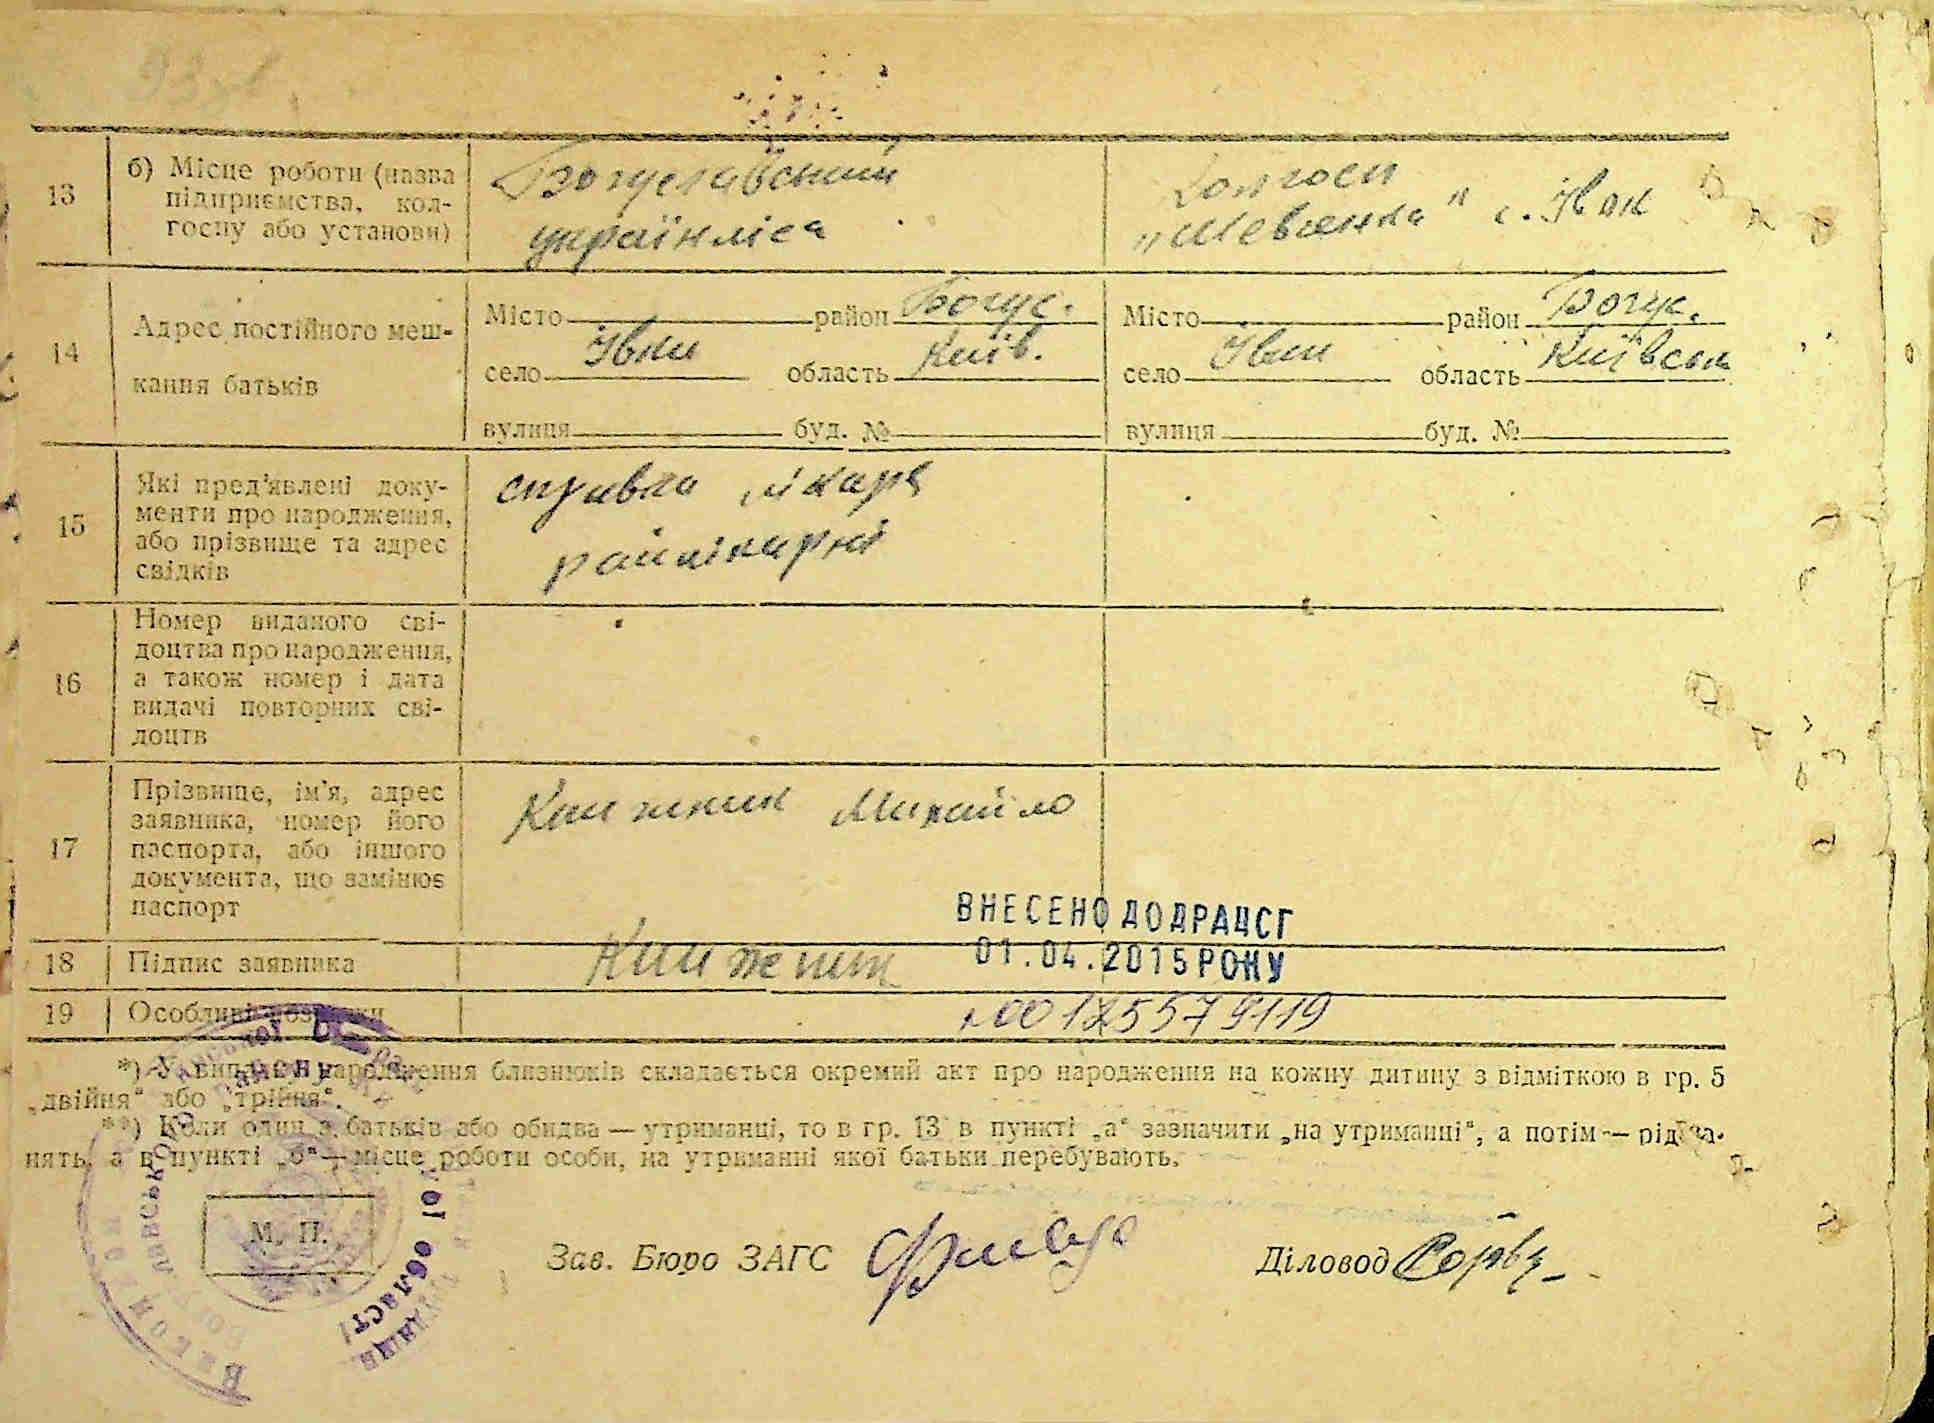 13
б) Місце роботи (назва
підприємства, кол-
госпу або установи)
Богуславський
українліса
Колгосп
„Шевченка" с. Івки
14
Адрес постійного меш-
кання батьків
Місто район Богус.
село Івки область Київ.
вулиця буд. №
Місто район Богус.
село Івки область Київськ
вулиця буд. №
15
Які пред'явлені доку-
менти про народження,
або прізвище та адрес
свідків
справка лікаря
райлікарні
16
Номер виданого сві-
доцтва про народження,
а також номер і дата
видачі повторних сві-
доцтв
17
Прізвище, ім'я, адрес
заявника, номер його
паспорта, або іншого
документа, що замінює
паспорт
Книжник Михайло
ВНЕСЕНО ДО ДРАЦСГ
01.04.2015 РОКУ
18
Підпис заявника
19
Особливі
00125579119
*) У випадку народження близнюків складається окремий акт про народження на кожну дитину з відміткою в гр. 5
„двійня" або „трійня".
**) Коли один з батьків або обидва — утриманці, то в гр. 13 в пункті „а" зазначити „на утриманні", а потім — рід за-
нять, а в пункті „б" — місце роботи особи, на утриманні якої батьки перебувають.
М. П.
області
Зав. Бюро ЗАГС
Діловод